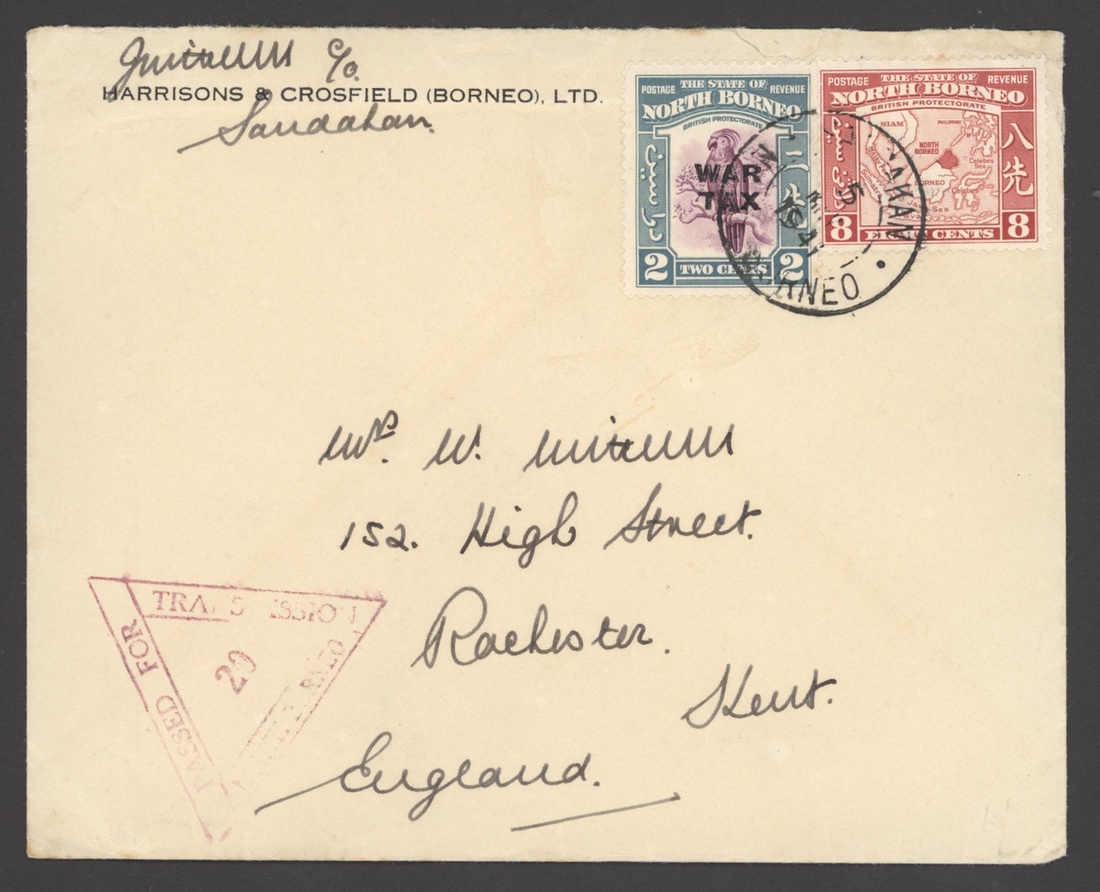 c/o
HARRISONS & CROSFIELD (BORNEO), LTD.
Sandakan
POSTAGE THE STATE OF REVENUE
NORTH BORNEO
BRITISH PROTECTORATE
WAR
TAX
2 TWO CENTS 2
POSTAGE THE STATE OF REVENUE
NORTH BORNEO
BRITISH PROTECTORATE
SIAM
NORTH
BORNEO
BORNEO
Celebes
Sea
Celebes
八先
8 EIGHT CENTS 8
1941
Mrs. W.
152. High Street.
Rochester.
Kent.
England.
PASSED FOR
TRANSMISSION
20